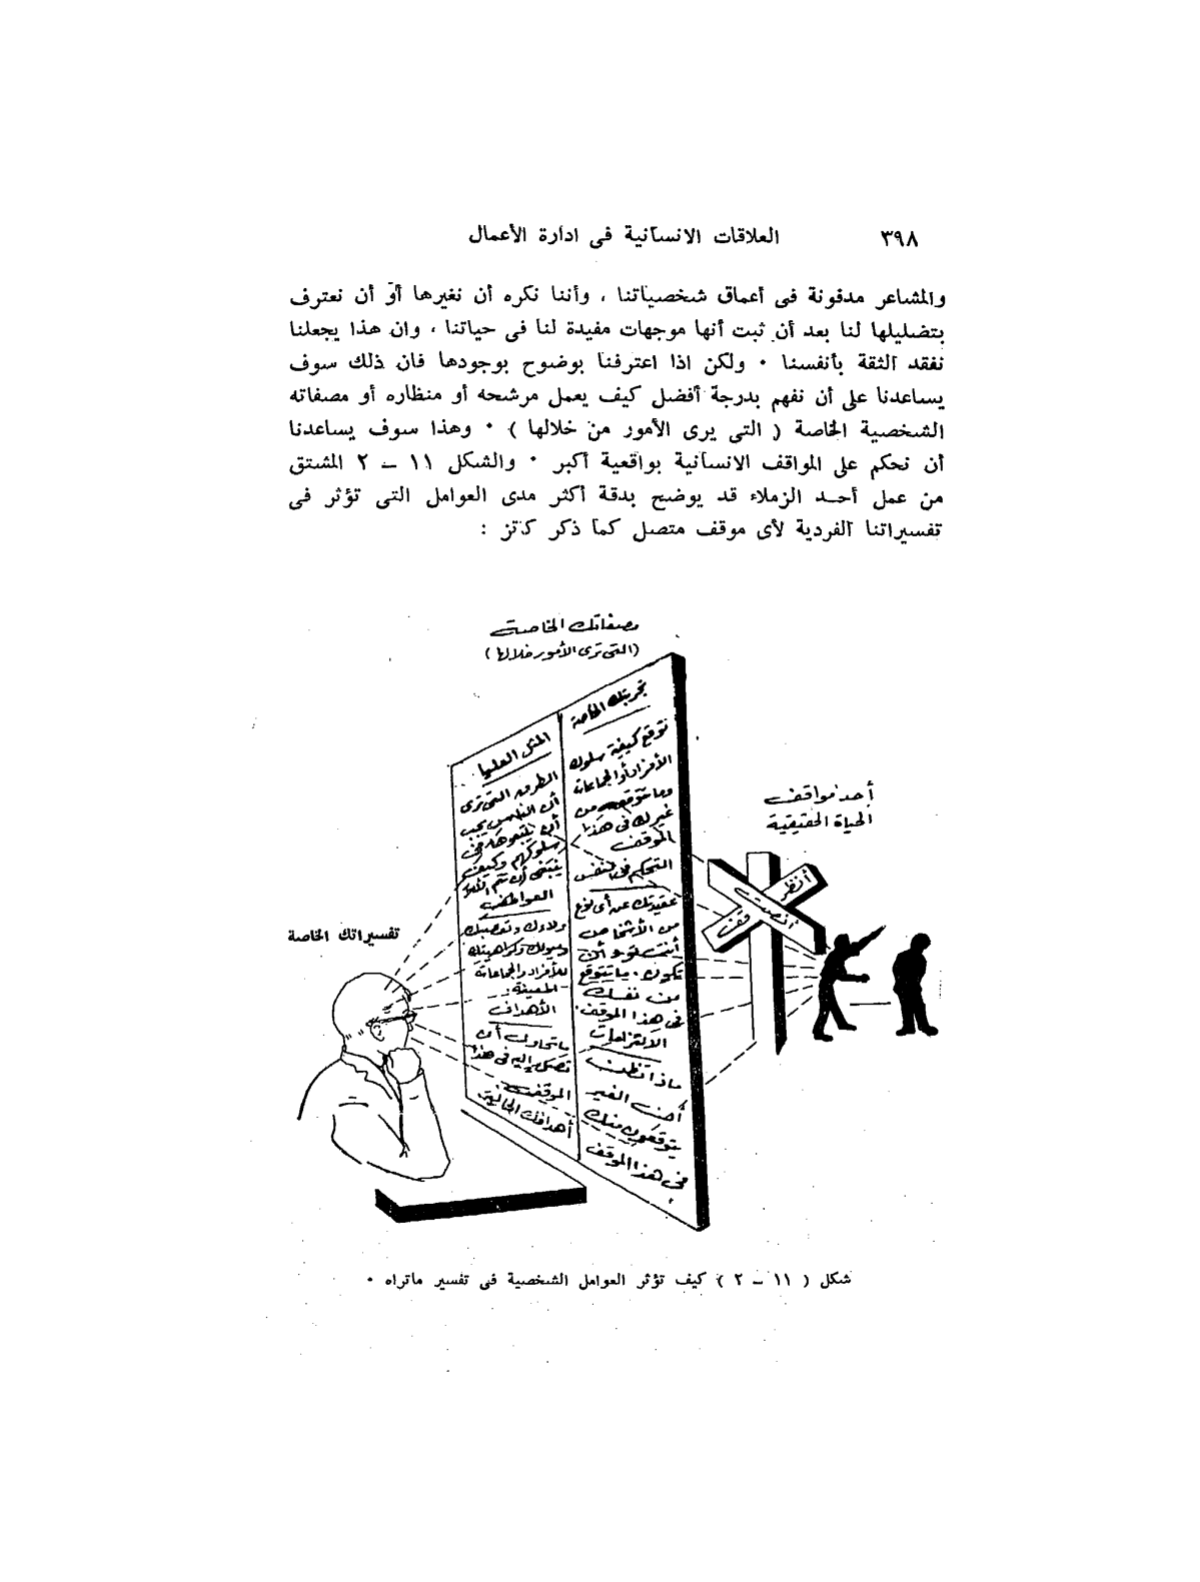 ٣٩٨
العلاقات الانسانية فى ادارة الأعمال
والمشاعر مدفونة فى أعماق شخصياتنا ، وأننا نكره أن نغيرها أو أن نعترف
بتضليلها لنا بعد أن ثبت أنها موجهات مفيدة لنا فى حياتنا ، وان هذا يجعلنا
نفقد الثقة بأنفسنا ٠ ولكن اذا اعترفنا بوضوح بوجودها فان ذلك سوف
يساعدنا على أن نفهم بدرجة أفضل كيف يعمل مرشحه أو منظاره أو مصفاته
الشخصية الخاصة ( التى يرى الأمور من خلالها ) ٠ وهذا سوف يساعدنا
أن نحكم على المواقف الانسانية بواقعية أكبر ٠ والشكل ١١ ــ ٢ المشتق
من عمل أحــد الزملاء قد يوضح بدقة أكثر مدى العوامل التى تؤثر فى
تفسيراتنا الفردية لأى موقف متصل كما ذكر كاتز :
مصفاتك الخاصة
(التى ترى الأمور خلالها)
تجربتك الخاصة
نتوقع كيفية سلوك
الأفراد أو الجماعات
وما تتوقعه من
غيرك فى هذا
الموقف
التحكم فى النفس
عقيدتك عن أى نوع
من الأشخاص
أنت تود أن
تكون. ما تتوقع
من نفسك
فى هذا الموقف.
الالتزامات
ماذا تظن
أن الغير
يتوقعون منك
فى هذا الموقف
المثل العليا
الطرق التى ترى
أن الناس يجب
أن يتبعوها فى
سلوكهم وكيف
ينبغى أن تتم
العواطف
ولاءك وتعصبك
وميولك وكراهيتك
للأفراد والجماعات
المعينة.
الأهداف
ما تحاول أن
تصل إليه فى هذا
الموقف
أهدافك الحالية
أحد مواقف
الحياة الحقيقية
أنظر
أنصت
قف
تفسيراتك الخاصة
شكل ( ١١ ــ ٢ ) كيف تؤثر العوامل الشخصية فى تفسير ماتراه ٠